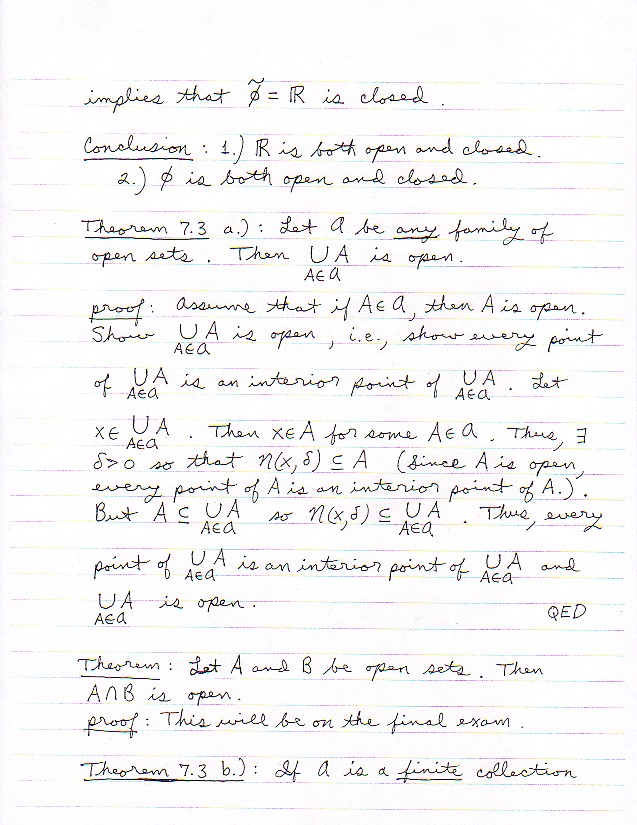 implies that ϕ̃ = ℝ is closed.
Conclusion: 1.) ℝ is both open and closed.
2.) ϕ is both open and closed.
Theorem 7.3 a.): Let 𝒜 be any family of
open sets. Then ∪ A is open.
A∈𝒜
proof: Assume that if A∈𝒜, then A is open.
Show ∪ A is open, i.e., show every point
A∈𝒜
of ∪ A is an interior point of ∪ A. Let
A∈𝒜 A∈𝒜
x∈ ∪ A. Then x∈A for some A∈𝒜. Thus, ∃
A∈𝒜
δ>0 so that η(x,δ) ⊆ A (Since A is open,
every point of A is an interior point of A.).
But A ⊆ ∪ A so η(x,δ) ⊆ ∪ A. Thus, every
A∈𝒜 A∈𝒜
point of ∪ A is an interior point of ∪ A and
A∈𝒜 A∈𝒜
∪ A is open.
A∈𝒜 QED
Theorem: Let A and B be open sets. Then
A∩B is open.
proof: This will be on the final exam.
Theorem 7.3 b.): If 𝒜 is a finite collection